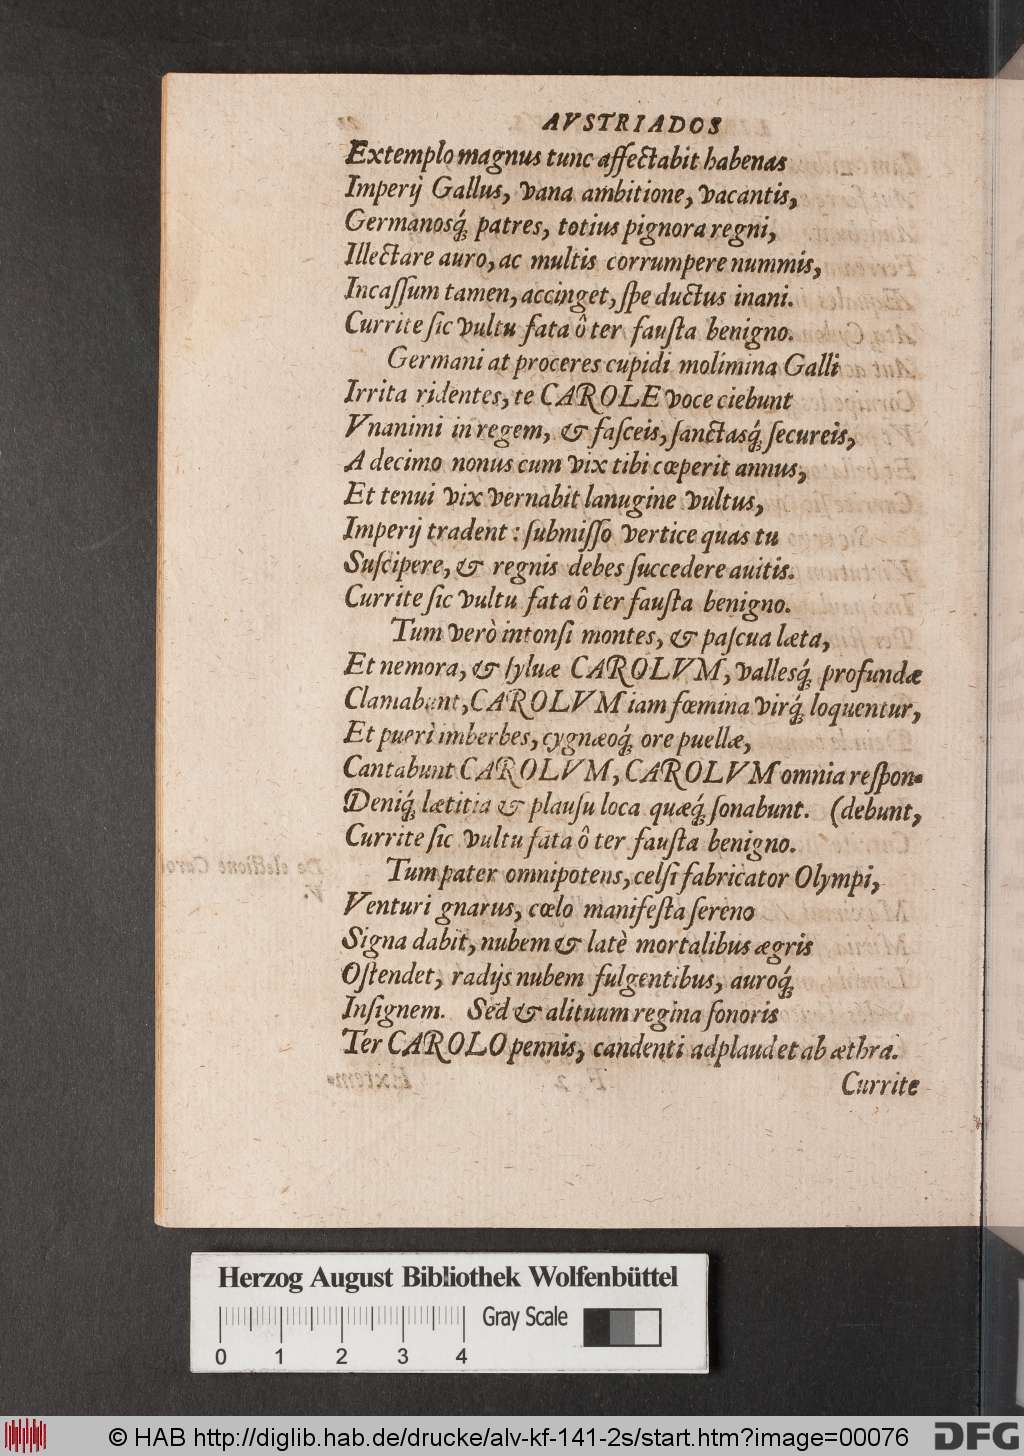 AVSTRIADOS
Extemplo magnus tunc affectabit habenas
Imperij Gallus, vana ambitione, vacantis,
Germanosq́ꝫ patres, totius pignora regni,
Illectare auro, ac multis corrumpere nummis,
Incaſſum tamen, accinget, ſpe ductus inani.
Currite ſic vultu fata ô ter fauſta benigno.
Germani at proceres cupidi molimina Galli
Irrita ridentes, te CAROLE voce ciebunt
Vnanimi in regem, & faſceis, ſanctasq́ꝫ ſecureis,
A decimo nonus cum vix tibi cœperit annus,
Et tenui vix vernabit lanugine vultus,
Imperij tradent: ſubmiſſo vertice quas tu
Suſcipere, & regnis debes ſuccedere auitis.
Currite ſic vultu fata ô ter fauſta benigno.
Tum verò intonſi montes, & paſcua læta,
Et nemora, & ſyluæ CAROLVM, vallesq́ꝫ profundæ
Clamabunt, CAROLVM iam fœmina virq́ꝫ loquentur,
Et pueri imberbes, cygnæoq́ꝫ ore puellæ,
Cantabunt CAROLVM, CAROLVM omnia reſpon-
Deniq́ꝫ lætitia & plauſu loca quæq́ꝫ ſonabunt. (debunt,
Currite ſic vultu fata ô ter fauſta benigno.
Tum pater omnipotens, celſi fabricator Olympi,
Venturi gnarus, cœlo manifeſta ſereno
Signa dabit, nubem & latè mortalibus ægris
Oſtendet, radijs nubem fulgentibus, auroq́ꝫ
Inſignem. Sed & alituum regina ſonoris
Ter CAROLO pennis, candenti adplaudet ab æthra.
Currite
Herzog August Bibliothek Wolfenbüttel
Gray Scale
0 1 2 3 4
© HAB http://diglib.hab.de/drucke/alv-kf-141-2s/start.htm?image=00076
DFG